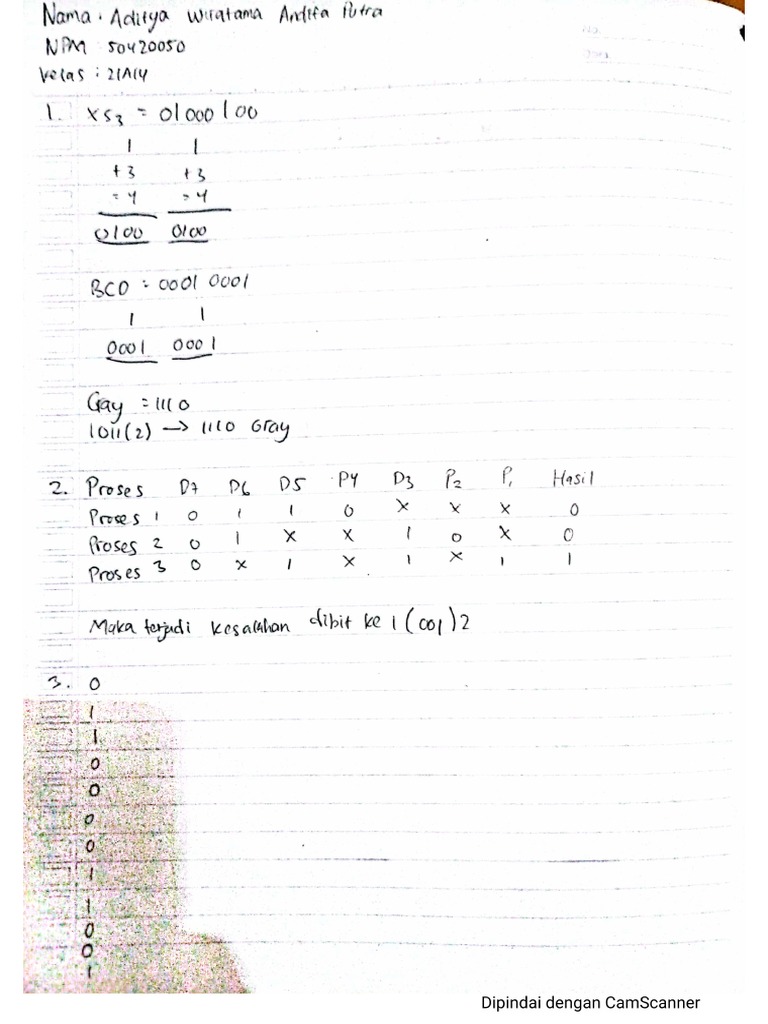 Nama : Aditya Wiratama Andifa Putra
NPM : 50420050
Kelas : 2IA14
1. XS3 = 01000100
1 1
+3 +3
= 4 = 4
0100 0100
BCD = 0001 0001
1 1
0001 0001
Gray = 1110
1011(2) → 1110 Gray
2. Proses D7 D6 D5 P4 D3 P2 P1 Hasil
Proses 1 0 1 1 0 x x x 0
Proses 2 0 1 x x 1 0 x 0
Proses 3 0 x 1 x 1 x 1 1
Maka terjadi kesalahan dibit ke 1 (001)2
3. 0
1
1
0
0
0
0
1
1
0
0
1
Dipindai dengan CamScanner